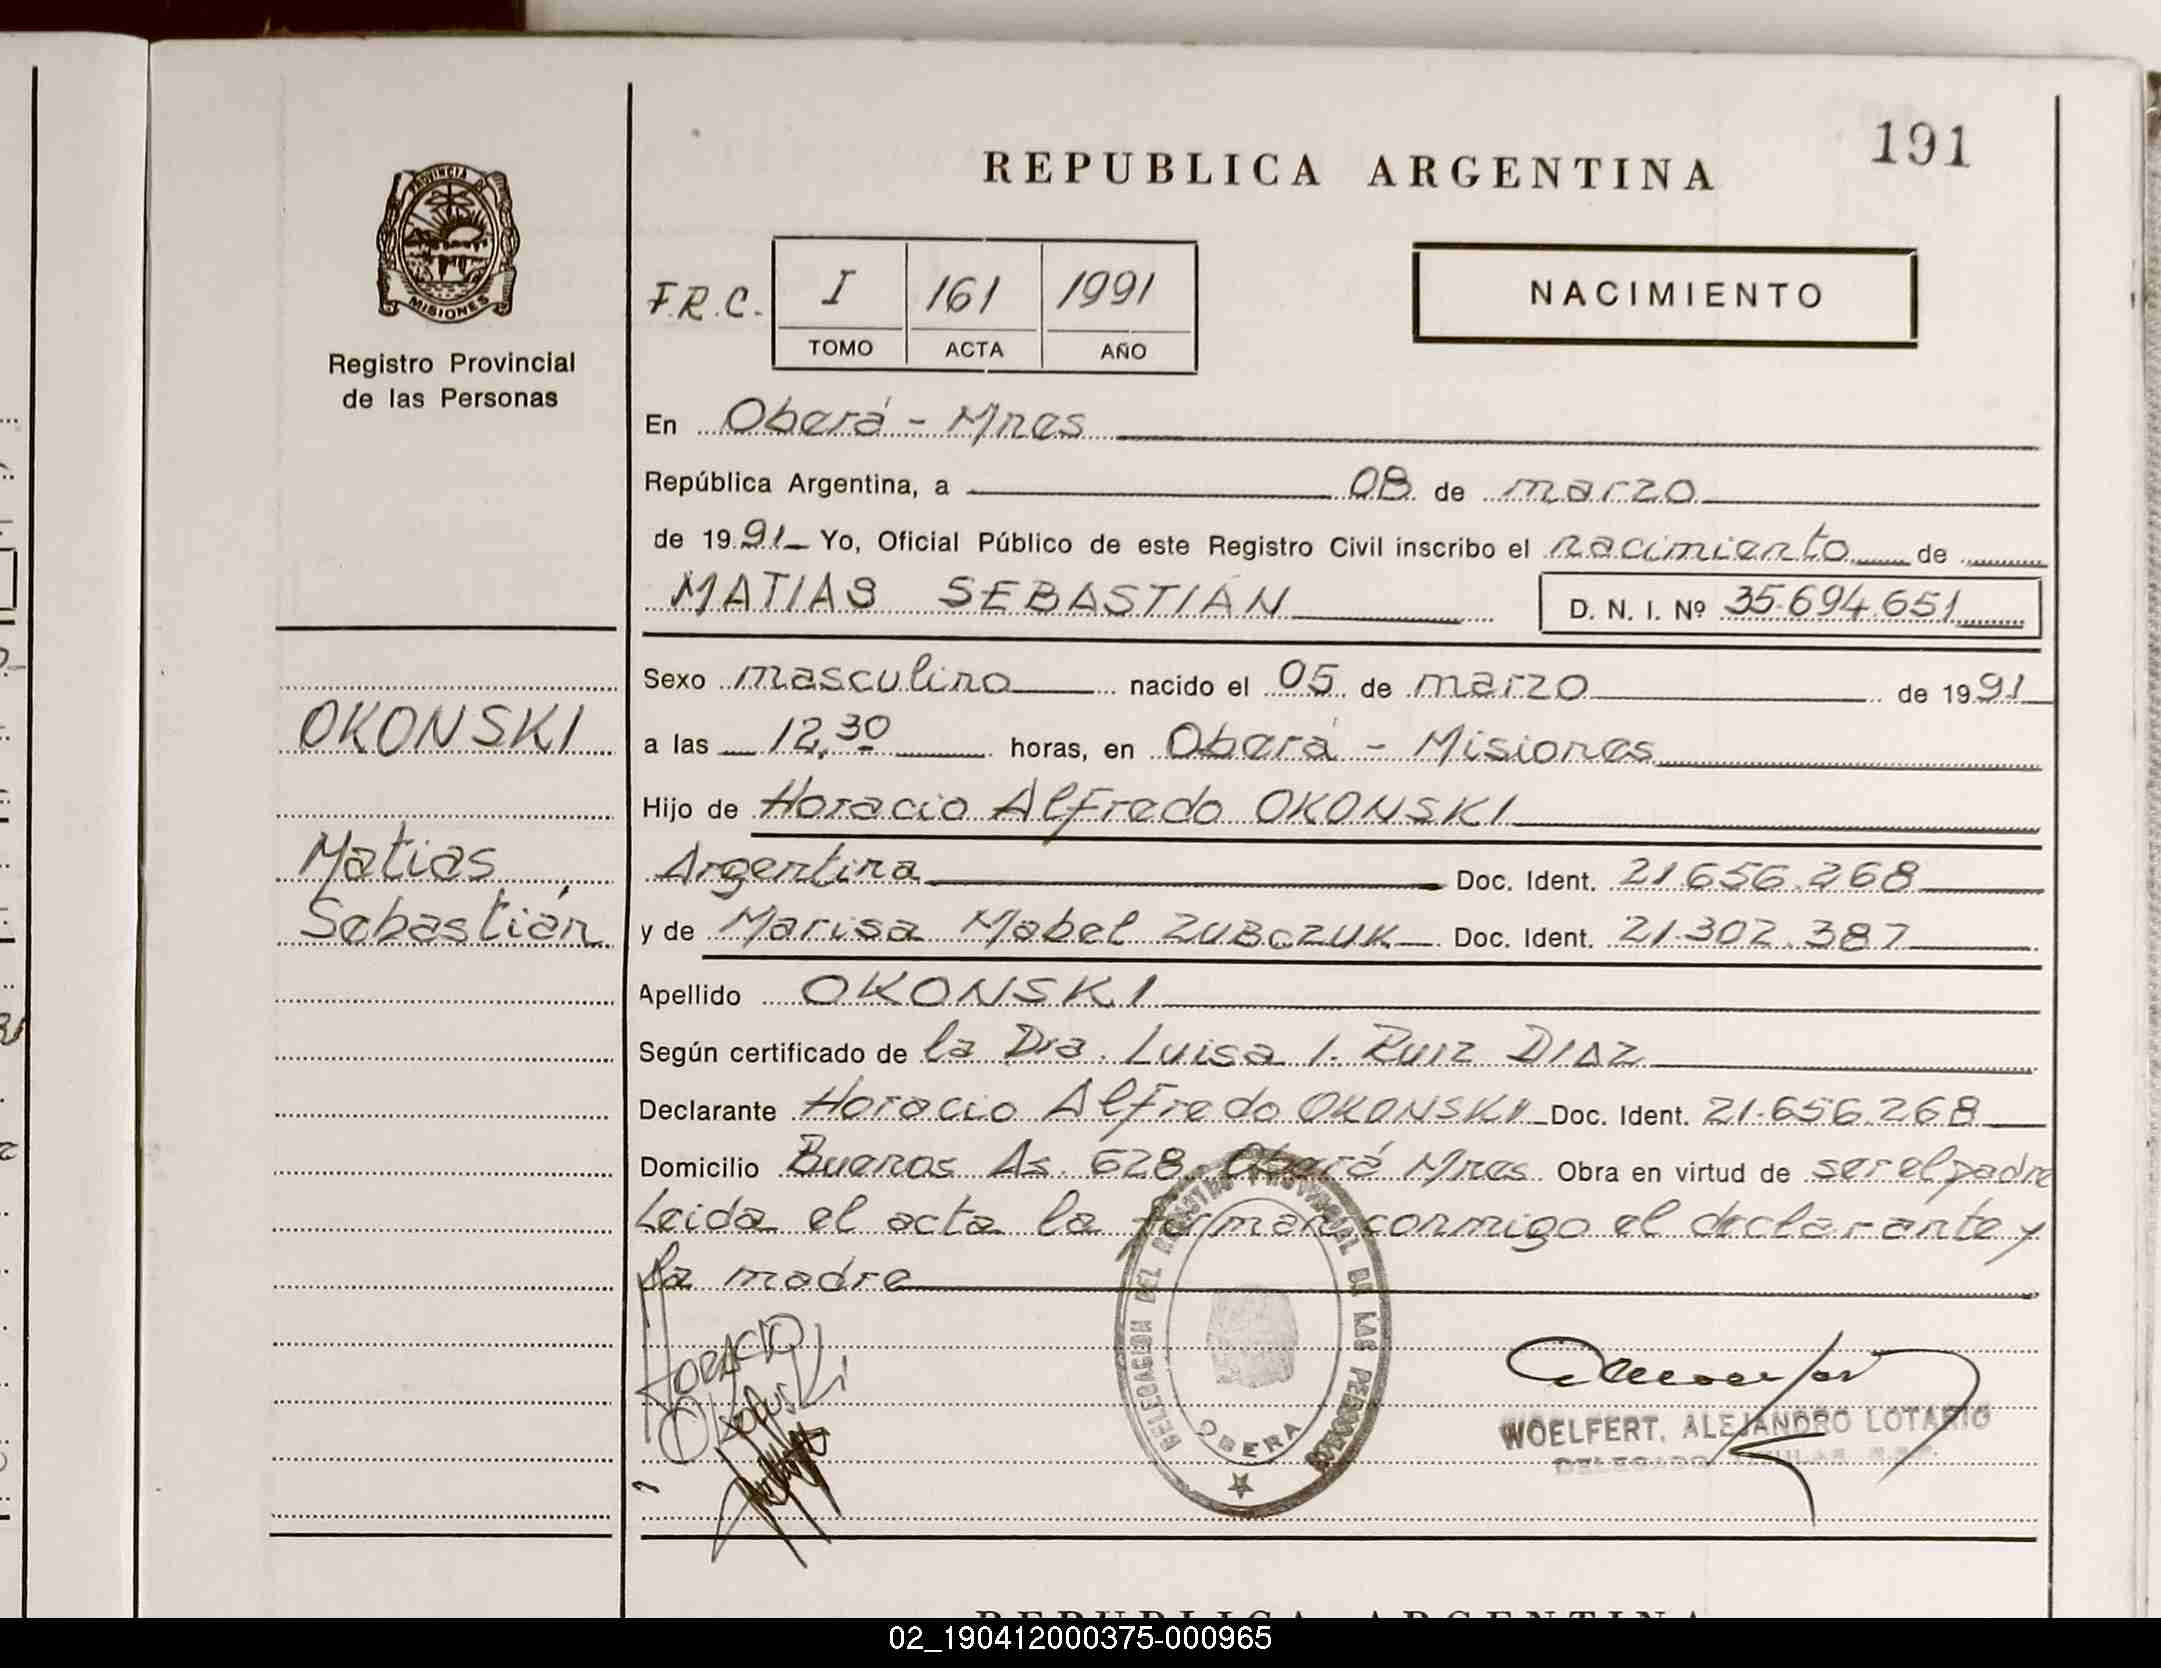 191
REPUBLICA ARGENTINA
PROVINCIA DE
MISIONES
Registro Provincial
de las Personas
F.R.C. I 161 1991
TOMO ACTA AÑO
NACIMIENTO
En Oberá - Mnes
República Argentina, a 08 de marzo
de 1991 Yo, Oficial Público de este Registro Civil inscribo el nacimiento de
MATIAS SEBASTIÁN D. N. I. Nº 35.694.651
Sexo masculino nacido el 05 de marzo de 1991
OKONSKI
a las 12,30 horas, en Oberá - Misiones
Hijo de Horacio Alfredo OKONSKI
Matias
Argentina Doc. Ident. 21.656.268
Sebastián
y de Marisa Mabel ZUBCZUK Doc. Ident. 21.302.387
Apellido OKONSKI
Según certificado de la Dra. Luisa I. Ruiz DIAZ
Declarante Horacio Alfredo OKONSKI Doc. Ident. 21.656.268
Domicilio Buenos As. 628. Oberá Mnes Obra en virtud de ser el padre
Leida el acta la firman conmigo el declarante y
la madre
HORACIO
Okonski
DELEGACION DEL REGISTRO PROVINCIAL DE LAS PERSONAS
OBERA
WOELFERT, ALEJANDRO LOTARIO
DELEGADO TITULAR
REPUBLICA ARGENTINA
02_190412000375-000965